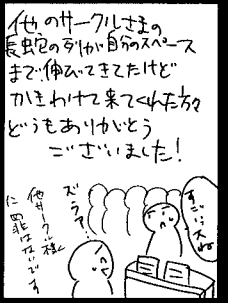 他のサークルさまの
長蛇の列が自分のスペース
まで伸びてきてたけど
かきわけて来てくれた方々
どうもありがとう
ございました!
すごいっスね
ズラァ…
他サークル様
に罪はないです